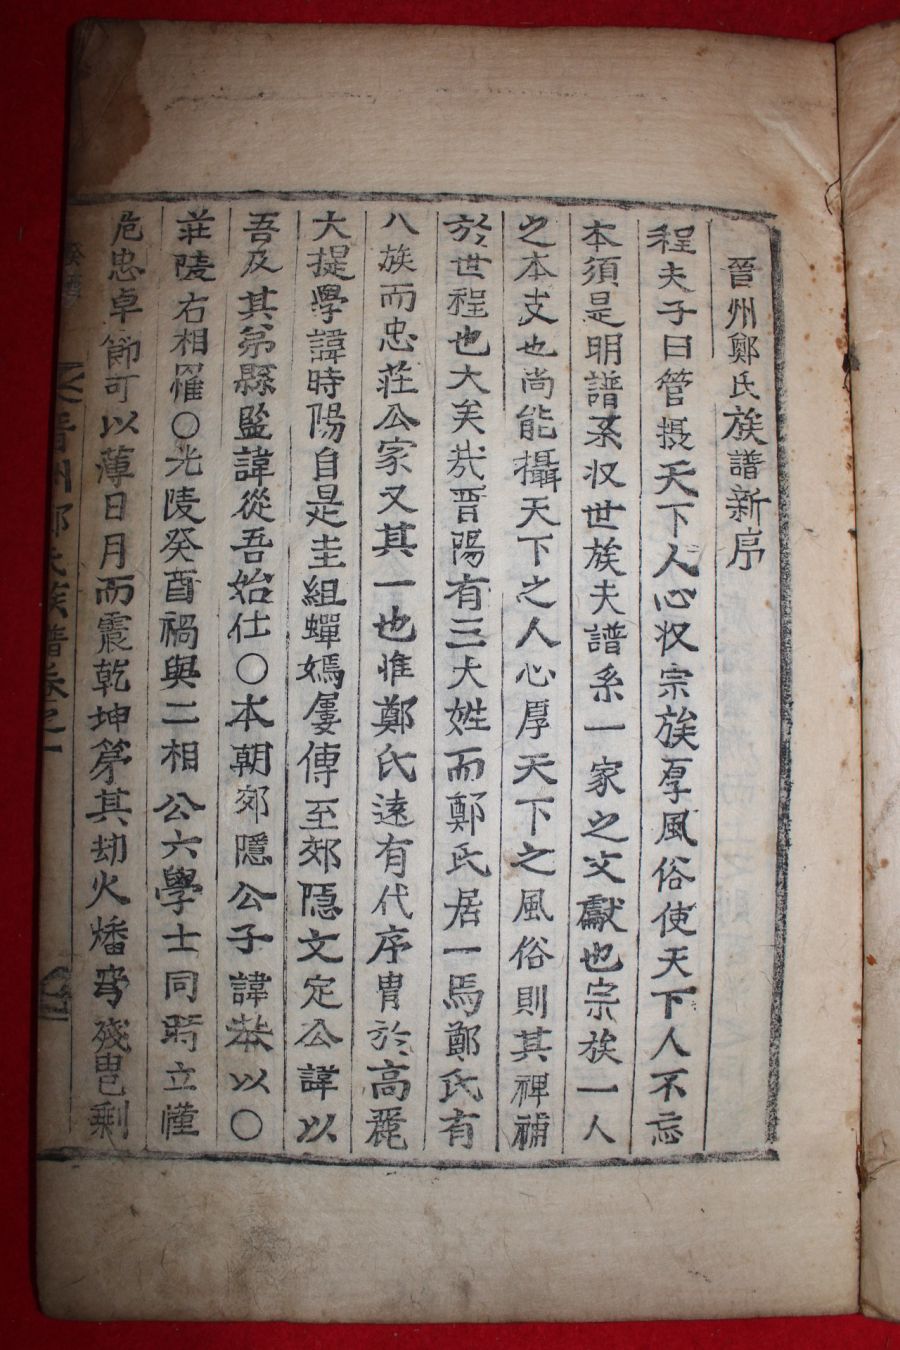 晉州鄭氏族譜新序
程夫子曰管摄天下人心収宗族厚風俗使天下人不忘
本須是明譜系収世族夫譜系一家之文獻也宗族一人
之本支也尚能攝天下之人心厚天下之風俗則其裨補
於世程也大矣哉晋陽有三大姓而鄭氏居一焉鄭氏有
八族而忠莊公家又其一也惟鄭氏遠有代序胄於高麗
大提學諱時陽自是圭組蟬嫣屢傳至郊隱文定公諱以
吾及其弟縣監諱從吾始仕○本朝郊隱公子諱苯以○
莊陵右相罹○光陵癸酉禍與二相公六學士同時立慬
危忠卓節可以薄日月而震乾坤第其劫火燔穹殘卷剩
晋州鄭氏族譜卷之一